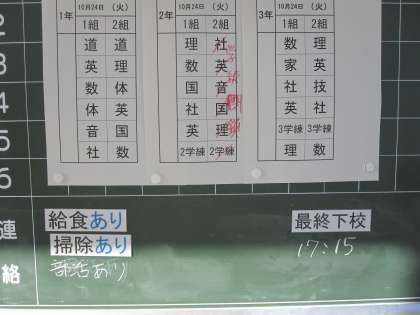 10月24日 (火) 10月24日 (火) 10月24日 (火)
1年 1組 2組 2年 1組 2組 3年 1組 2組
2 道 道 理 社 数 理
3 英 理 数 英 家 英
数 体 国 音 社 技
4 体 英 社 国 英 社
5 音 国 英 理 3学練 3学練
6 社 数 2学練 2学練 理 数
連 給食あり 最終下校
掃除あり 17:15
絡 部活あり